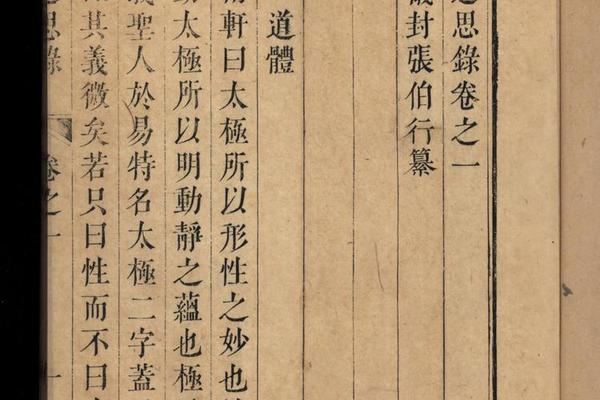 思錄卷之一
封張伯行纂
道體
軒曰太極所以形性之妙也
太極所以明動靜之蘊也極
聖人於易特名太極二字蓋
其義微矣若只曰性而不曰
思錄 卷之一 一